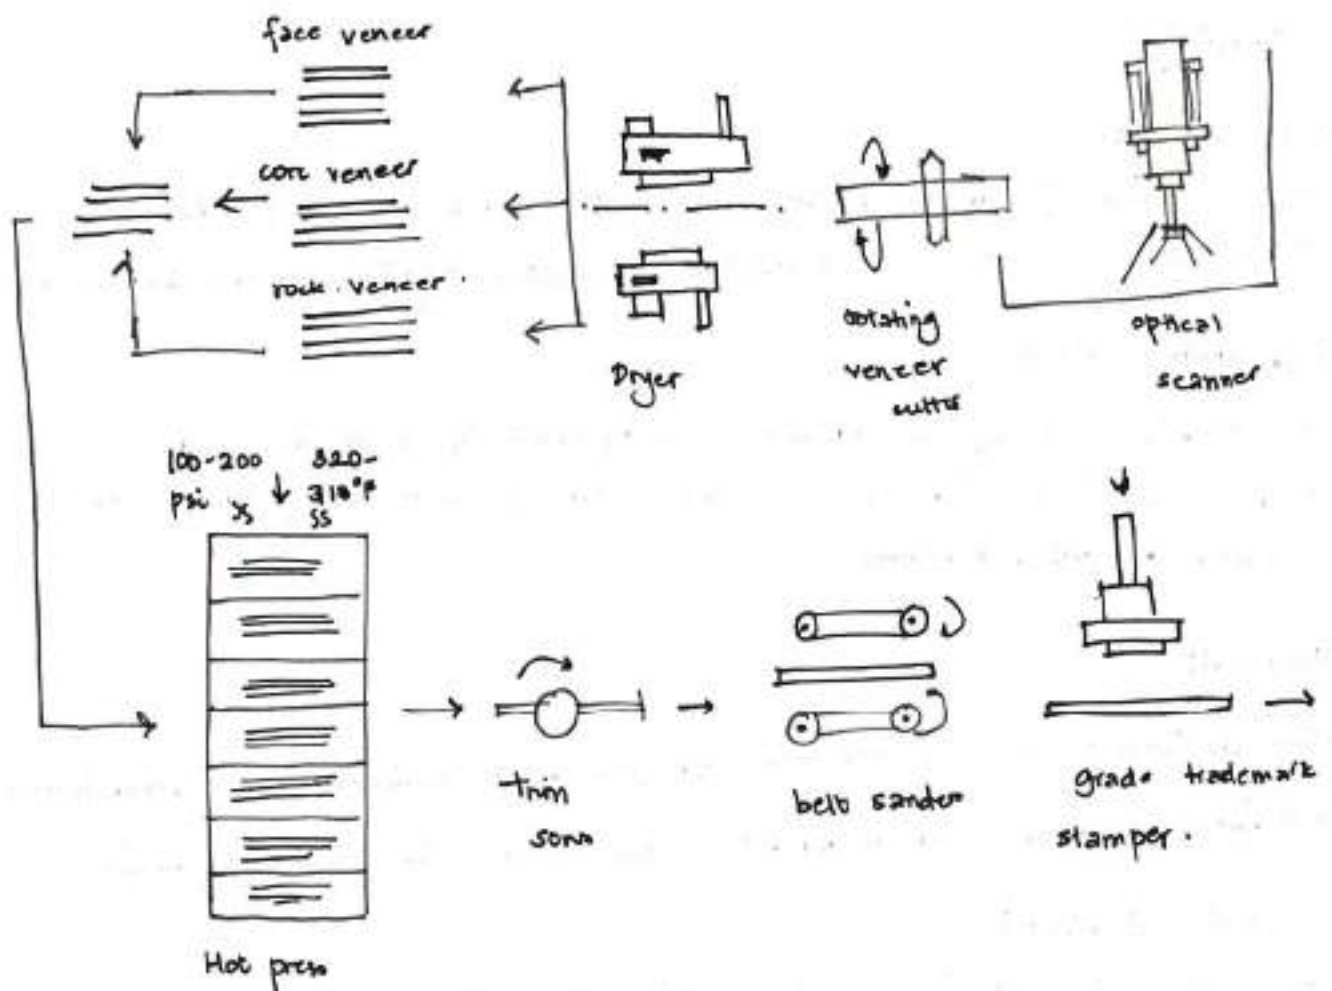 face veneer
core veneer
rock veneer.
Dryer
rotating
veneer
cutter
optical
scanner
100-200
psi
320-
Hot press
trim
belt sander
grade trademark
stamper.